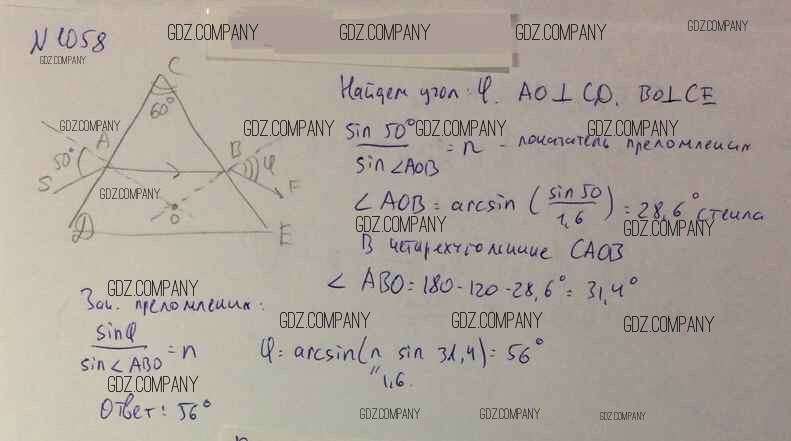 N 1058
GDZ.COMPANY GDZ.COMPANY GDZ.COMPANY GDZ.COMPANY
GDZ.COMPANY
C
60°
Найдем угол: φ. AO⊥CD. BO⊥CE
GDZ.COMPANY GDZ.COMPANY GDZ.COMPANY GDZ.COMPANY
A B
50° φ
S F
O
D E
sin 50° / sin ∠AOB = n - показатель преломления
GDZ.COMPANY GDZ.COMPANY
∠ AOB = arcsin (sin 50 / 1,6) = 28,6° стекла
GDZ.COMPANY GDZ.COMPANY
В четырехугольнике CAOB
∠ ABO = 180 - 120 - 28,6° = 31,4°
GDZ.COMPANY
Зак. преломления:
GDZ.COMPANY GDZ.COMPANY GDZ.COMPANY
sin φ / sin ∠ ABO = n
φ = arcsin(n sin 31,4) = 56°
" 1,6.
GDZ.COMPANY
Ответ: 56°
GDZ.COMPANY GDZ.COMPANY GDZ.COMPANY